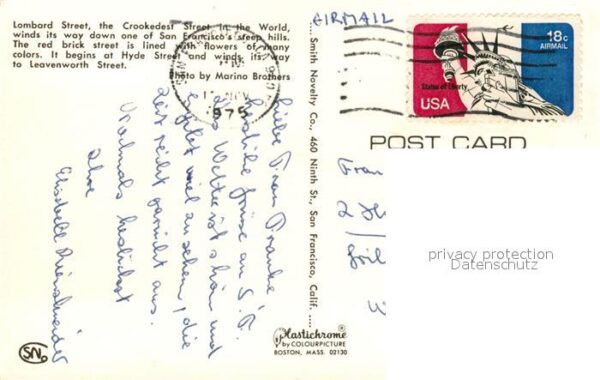 Lombard Street, the Crookedest Street in the World,
winds its way down one of San Francisco's steep hills.
The red brick street is lined with flowers of many
colors. It begins at Hyde Street and winds its way
to Leavenworth Street.
Photo by Marino Brothers
AIRMAIL
18c
AIRMAIL
Statue of Liberty
USA
NOV
1975
POST CARD
Smith Novelty Co., 460 Ninth St., San Francisco, Calif.
Liebe Frau Franke!
Herzliche Grüsse aus S.F.
Das Wetter ist schön und
es gibt viel zu sehen, die
Zeit reicht garnicht aus.
Nochmals herzlichst
Ihre
Elisabeth
Frau
2
privacy protection
Datenschutz
Plastichrome®
by COLOURPICTURE
BOSTON, MASS. 02130
SN